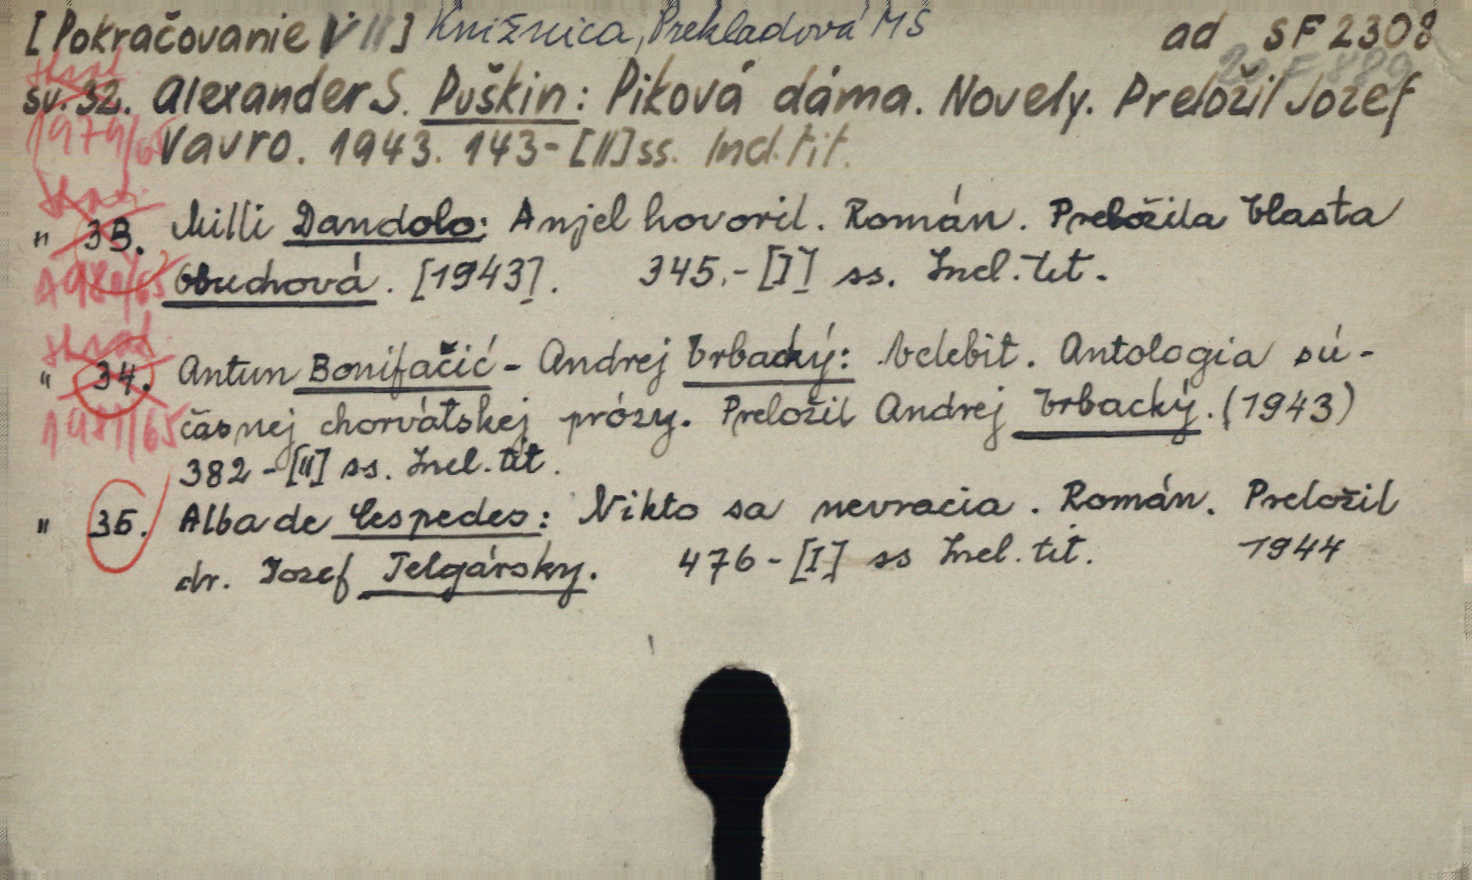 [Pokračovanie VII] Knižnica, Prekladová MS ad SF 2308
škrt.
sv. 32. Alexander S. Puškin: Piková dáma. Novely. Preložil Jozef
1979/65 Vavro. 1943. 143-[II] ss. Incl. tit.
škrt.
" 33. Milli Dandolo: Anjel hovoril. Román. Preložila Vlasta
1980/65 Obuchová. [1943]. 345.-[I] ss. Incl. tit.
" 34. Antun Bonifačić - Andrej Vrbacký: Velebit. Antologia sú-
1981/65 časnej chorvátskej prózy. Preložil Andrej Vrbacký. (1943)
382-[II] ss. Incl. tit.
" 35. Alba de Cespedes: Nikto sa nevracia. Román. Preložil
dr. Jozef Telgársky. 476-[I] ss Incl. tit. 1944